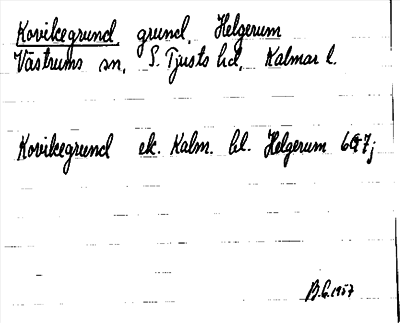 Kovikegrund, grund, Helgerum
Västrums sn, S. Tjusts hd, Kalmar l.
Kovikegrund ek. Kalm. bl. Helgerum 6G7j
B.G. 1957